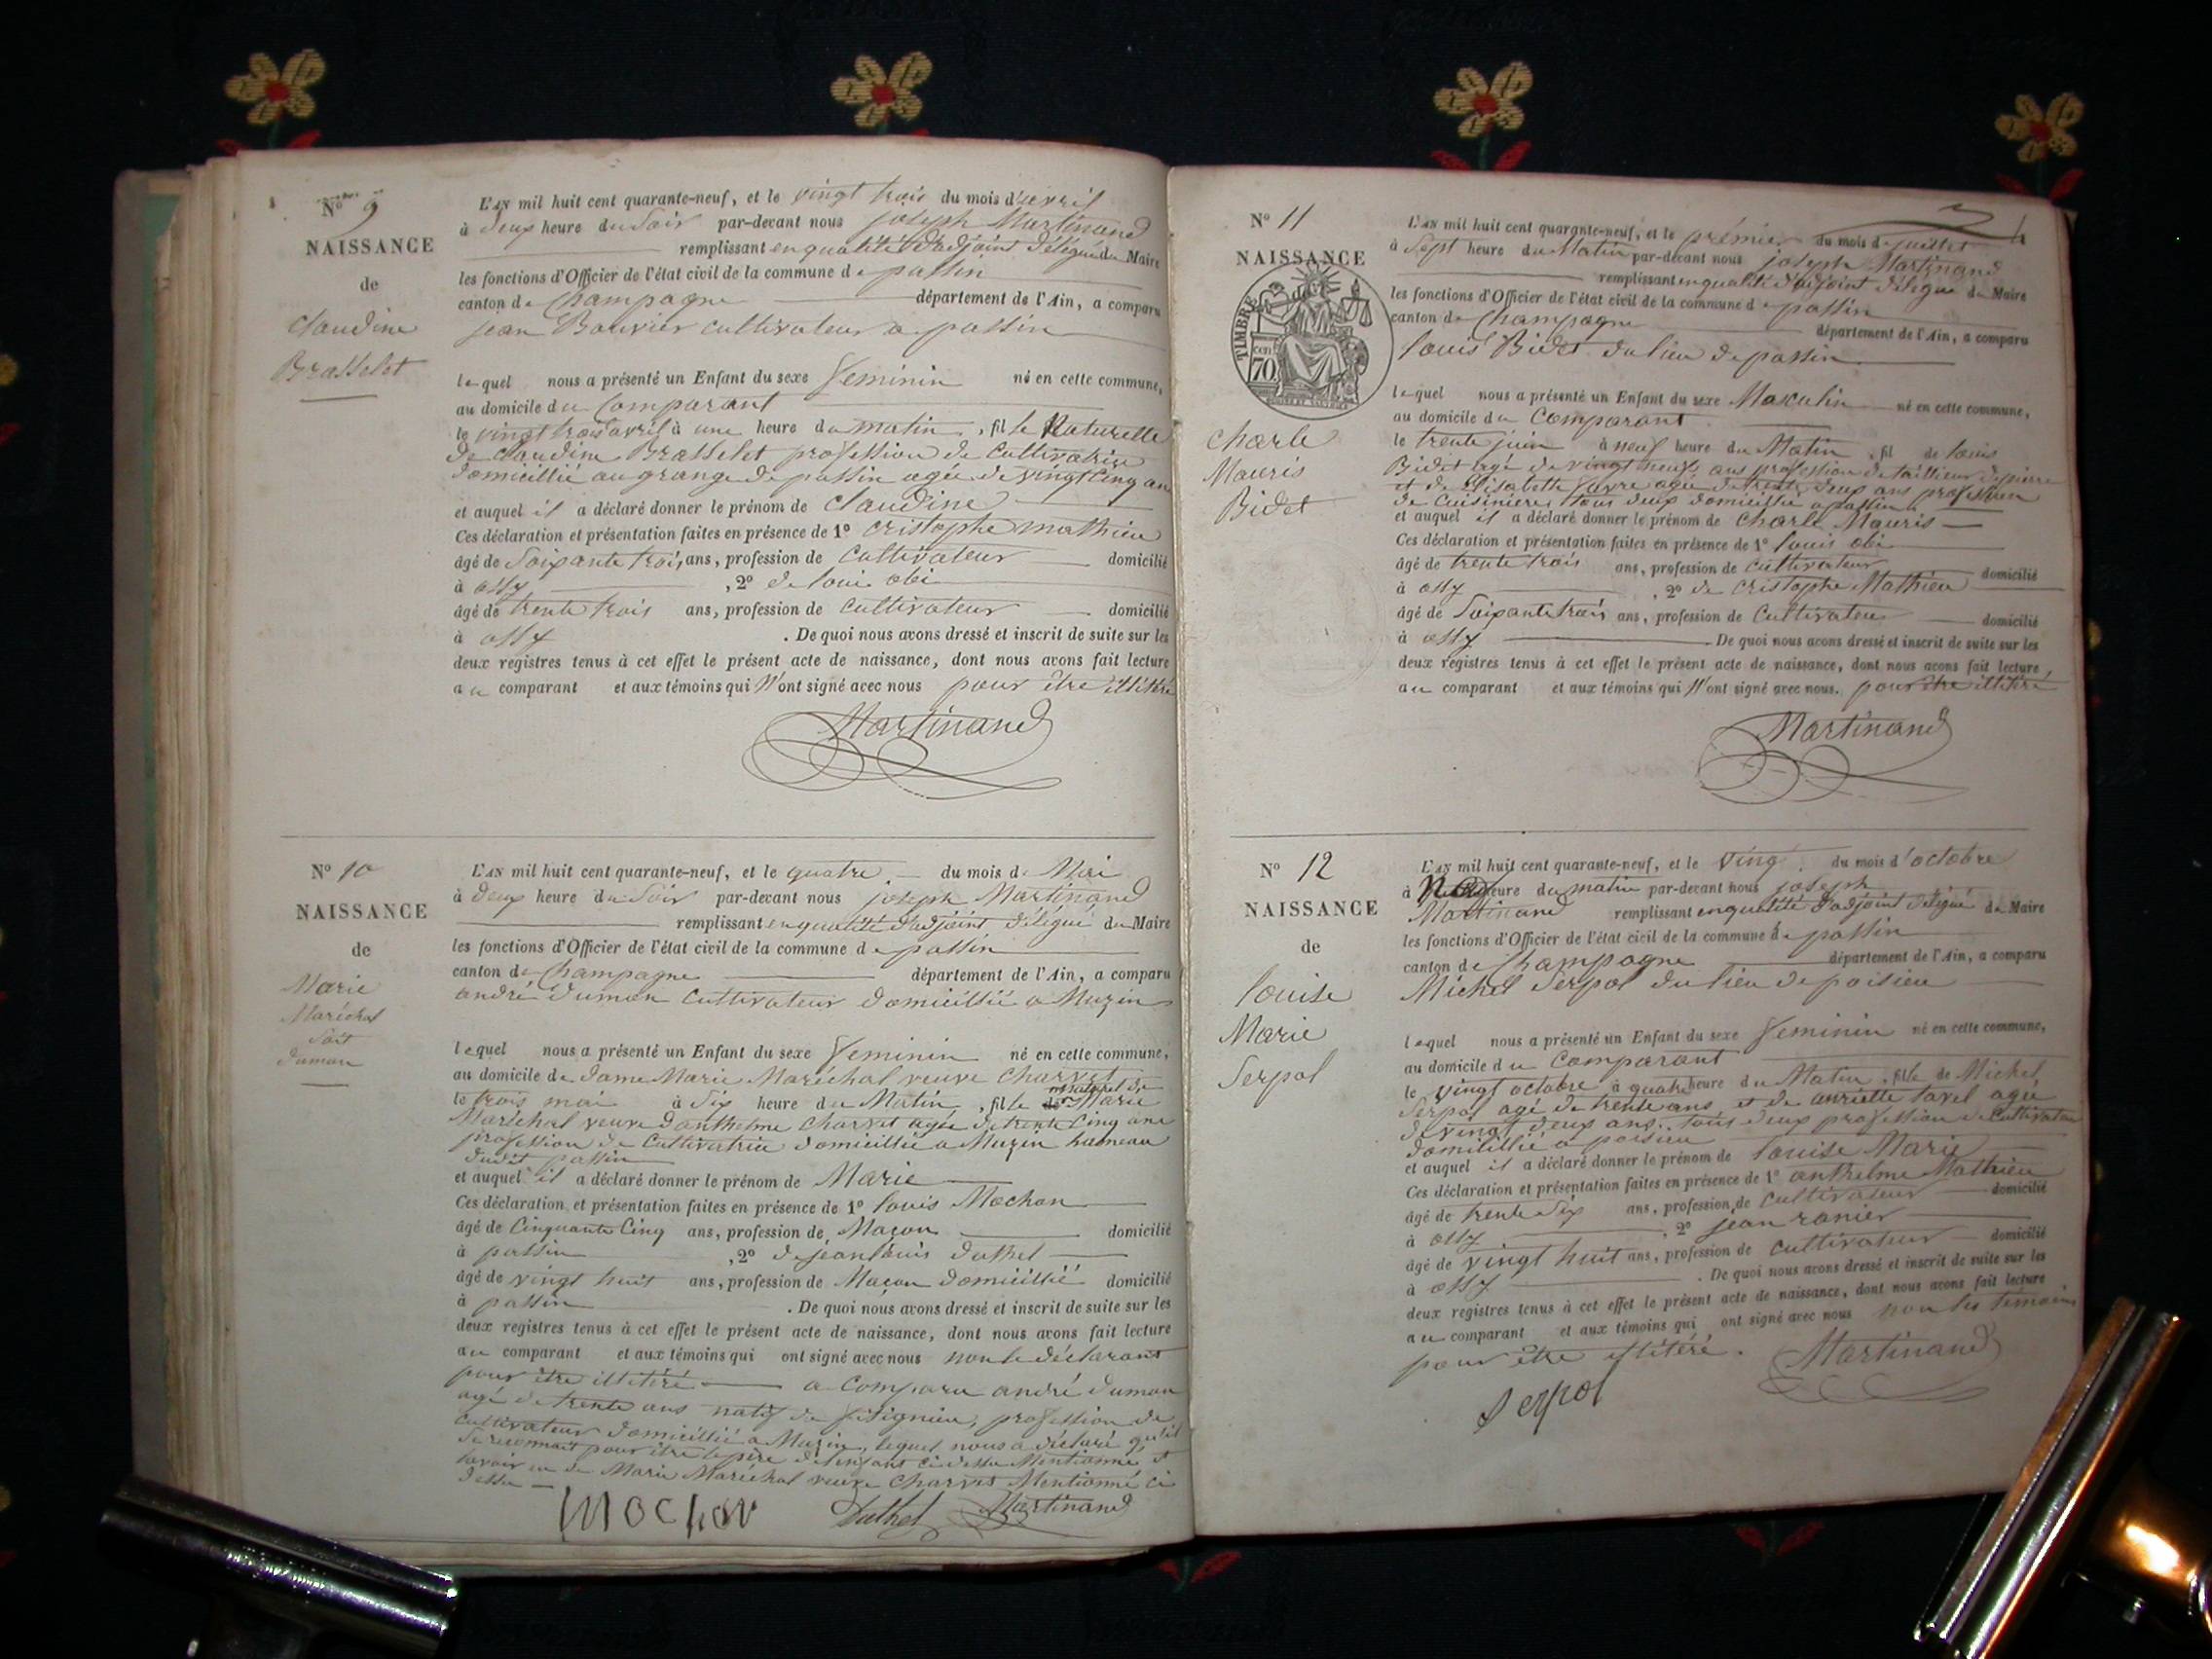 Nº 9
NAISSANCE
de
Claudine
Brasselet
L'AN mil huit cent quarante-neuf, et le vingt trois du mois d'avril
à deux heure du Soir par-devant nous joseph Martinand
remplissant en qualité d'adjoint délégué du Maire
les fonctions d'Officier de l'état civil de la commune de passin
canton de Champagne département de l'Ain, a comparu
jean Bouvier cultivateur a passin
lequel nous a présenté un Enfant du sexe feminin né en cette commune,
au domicile du Comparant
le vingt trois avril à une heure du matin, fille Naturelle
de claudine Brasselet profession de Cultivatrice
domicillié au grange de passin agée de vingt Cinq an
et auquel il a déclaré donner le prénom de Claudine
Ces déclaration et présentation faites en présence de 1º cristophe mathieu
âgé de Soixante trois ans, profession de Cultivateur domicilié
à ossy , 2º de louis obi
âgé de trente trois ans, profession de Cultivateur domicilié
à ossy . De quoi nous avons dressé et inscrit de suite sur les
deux registres tenus à cet effet le présent acte de naissance, dont nous avons fait lecture
au comparant et aux témoins qui N'ont signé avec nous pour être illitéré
Martinand
Nº 10
NAISSANCE
de
Marie
Maréchal
Soit
dumon
L'AN mil huit cent quarante-neuf, et le quatre du mois d. Mai
à deux heure du Soir par-devant nous joseph Martinand
remplissant en qualité d'adjoint délégué du Maire
les fonctions d'Officier de l'état civil de la commune de passin
canton de Champagne département de l'Ain, a comparu
andré dumon Cultivateur domicillié a Muzin
lequel nous a présenté un Enfant du sexe feminin né en cette commune,
au domicile de dame Marie Maréchal veuve Charvet
le trois mai à Six heure du Matin, fille naturel de Marie
Maréchal veuve d'anthelme Charvet agée de trente Cinq ans
profession de Cultivatrice domicillié a Muzin hameau
dudit passin
et auquel il a déclaré donner le prénom de Marie
Ces déclaration et présentation faites en présence de 1º louis Mochon
âgé de Cinquante Cinq ans, profession de Maçon domicilié
à passin , 2º de jean louis duthel
âgé de vingt huit ans, profession de Maçon domicillié domicilié
à passin . De quoi nous avons dressé et inscrit de suite sur les
deux registres tenus à cet effet le présent acte de naissance, dont nous avons fait lecture
au comparant et aux témoins qui ont signé avec nous non le déclarant
pour être illitéré a Comparu andré dumon
agé de trente ans natif de profession de
Cultivateur domicillié a Muzin, lequel nous a déclaré qu'il
Se reconnait pour être le père de l'enfant ci dessu Mentionné et
lavoir eu de Marie Maréchal veuve Charvet Mentionné ci
dessu
Mochon Duthel Martinand
Nº 11
NAISSANCE
TIMBRE
cen
70
Charle
Mauris
Bidet
L'AN mil huit cent quarante-neuf, et le prémier du mois de juillet
à Sept heure du Matin par-devant nous joseph Martinand
remplissant en qualité d'adjoint délégué du Maire
les fonctions d'Officier de l'état civil de la commune de passin
canton de Champagne département de l'Ain, a comparu
louis Bidet du lieu de passin
lequel nous a présenté un Enfant du sexe Masculin né en cette commune,
au domicile du Comparant
le trente juin à neuf heure du Matin, fil de louis
Bidet agé de vingt neuf ans profession de taillieur de pierre
et de Elisabette favre agée de trente deux ans profession
de Cuisiniere tous deux domicillié a passin
et auquel il a déclaré donner le prénom de Charle Mauris
Ces déclaration et présentation faites en présence de 1º louis obi
âgé de trente trois ans, profession de Cultivateur domicilié
à ossy , 2º de cristophe Mathieu
âgé de Soixante trois ans, profession de Cultivateur domicilié
à ossy De quoi nous avons dressé et inscrit de suite sur les
deux registres tenus à cet effet le présent acte de naissance, dont nous avons fait lecture
au comparant et aux témoins qui N'ont signé avec nous. pour être illitéré
Martinand
Nº 12
NAISSANCE
de
louise
Marie
Serpol
L'AN mil huit cent quarante-neuf, et le Ving du mois d'octobre
à heure du matin par-devant nous joseph
Martinand remplissant en qualité d'adjoint délégué du Maire
les fonctions d'Officier de l'état civil de la commune de passin
canton de Champagne département de l'Ain, a comparu
Michel Serpol du lieu de poisieu
lequel nous a présenté un Enfant du sexe feminin né en cette commune,
au domicile du Comparant
le vingt octobre à quatre heure du Matin, fille de Michel
Serpol agé de trente ans et de anriette tavel agée
de vingt deux ans. tous deux profession de Cultivateur
domicillié a poisieu
et auquel il a déclaré donner le prénom de louise Marie
Ces déclaration et présentation faites en présence de 1º anthelme Mathieu
âgé de trente Six ans, profession de Cultivateur domicilié
à ossy , 2º jean ranier
âgé de vingt huit ans, profession de Cultivateur domicilié
à ossy . De quoi nous avons dressé et inscrit de suite sur les
deux registres tenus à cet effet le présent acte de naissance, dont nous avons fait lecture
au comparant et aux témoins qui ont signé avec nous non les témoins
pour être illitéré. Martinand
Serpol